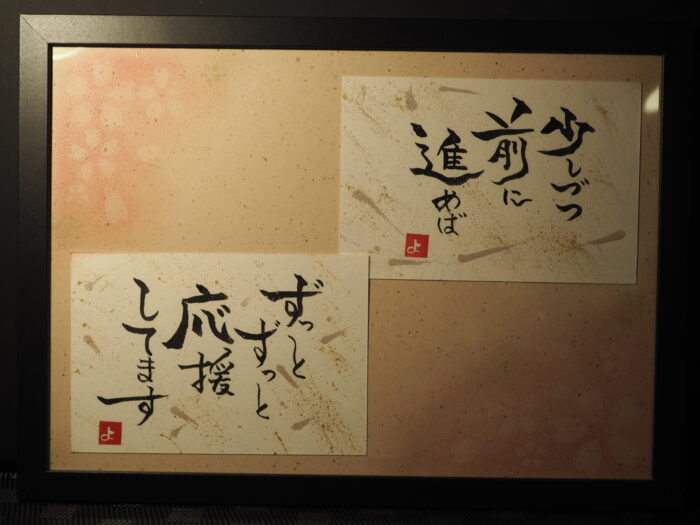 少しづつ
前に
進めば
よ
ずっと
ずっと
応援
してます
よ